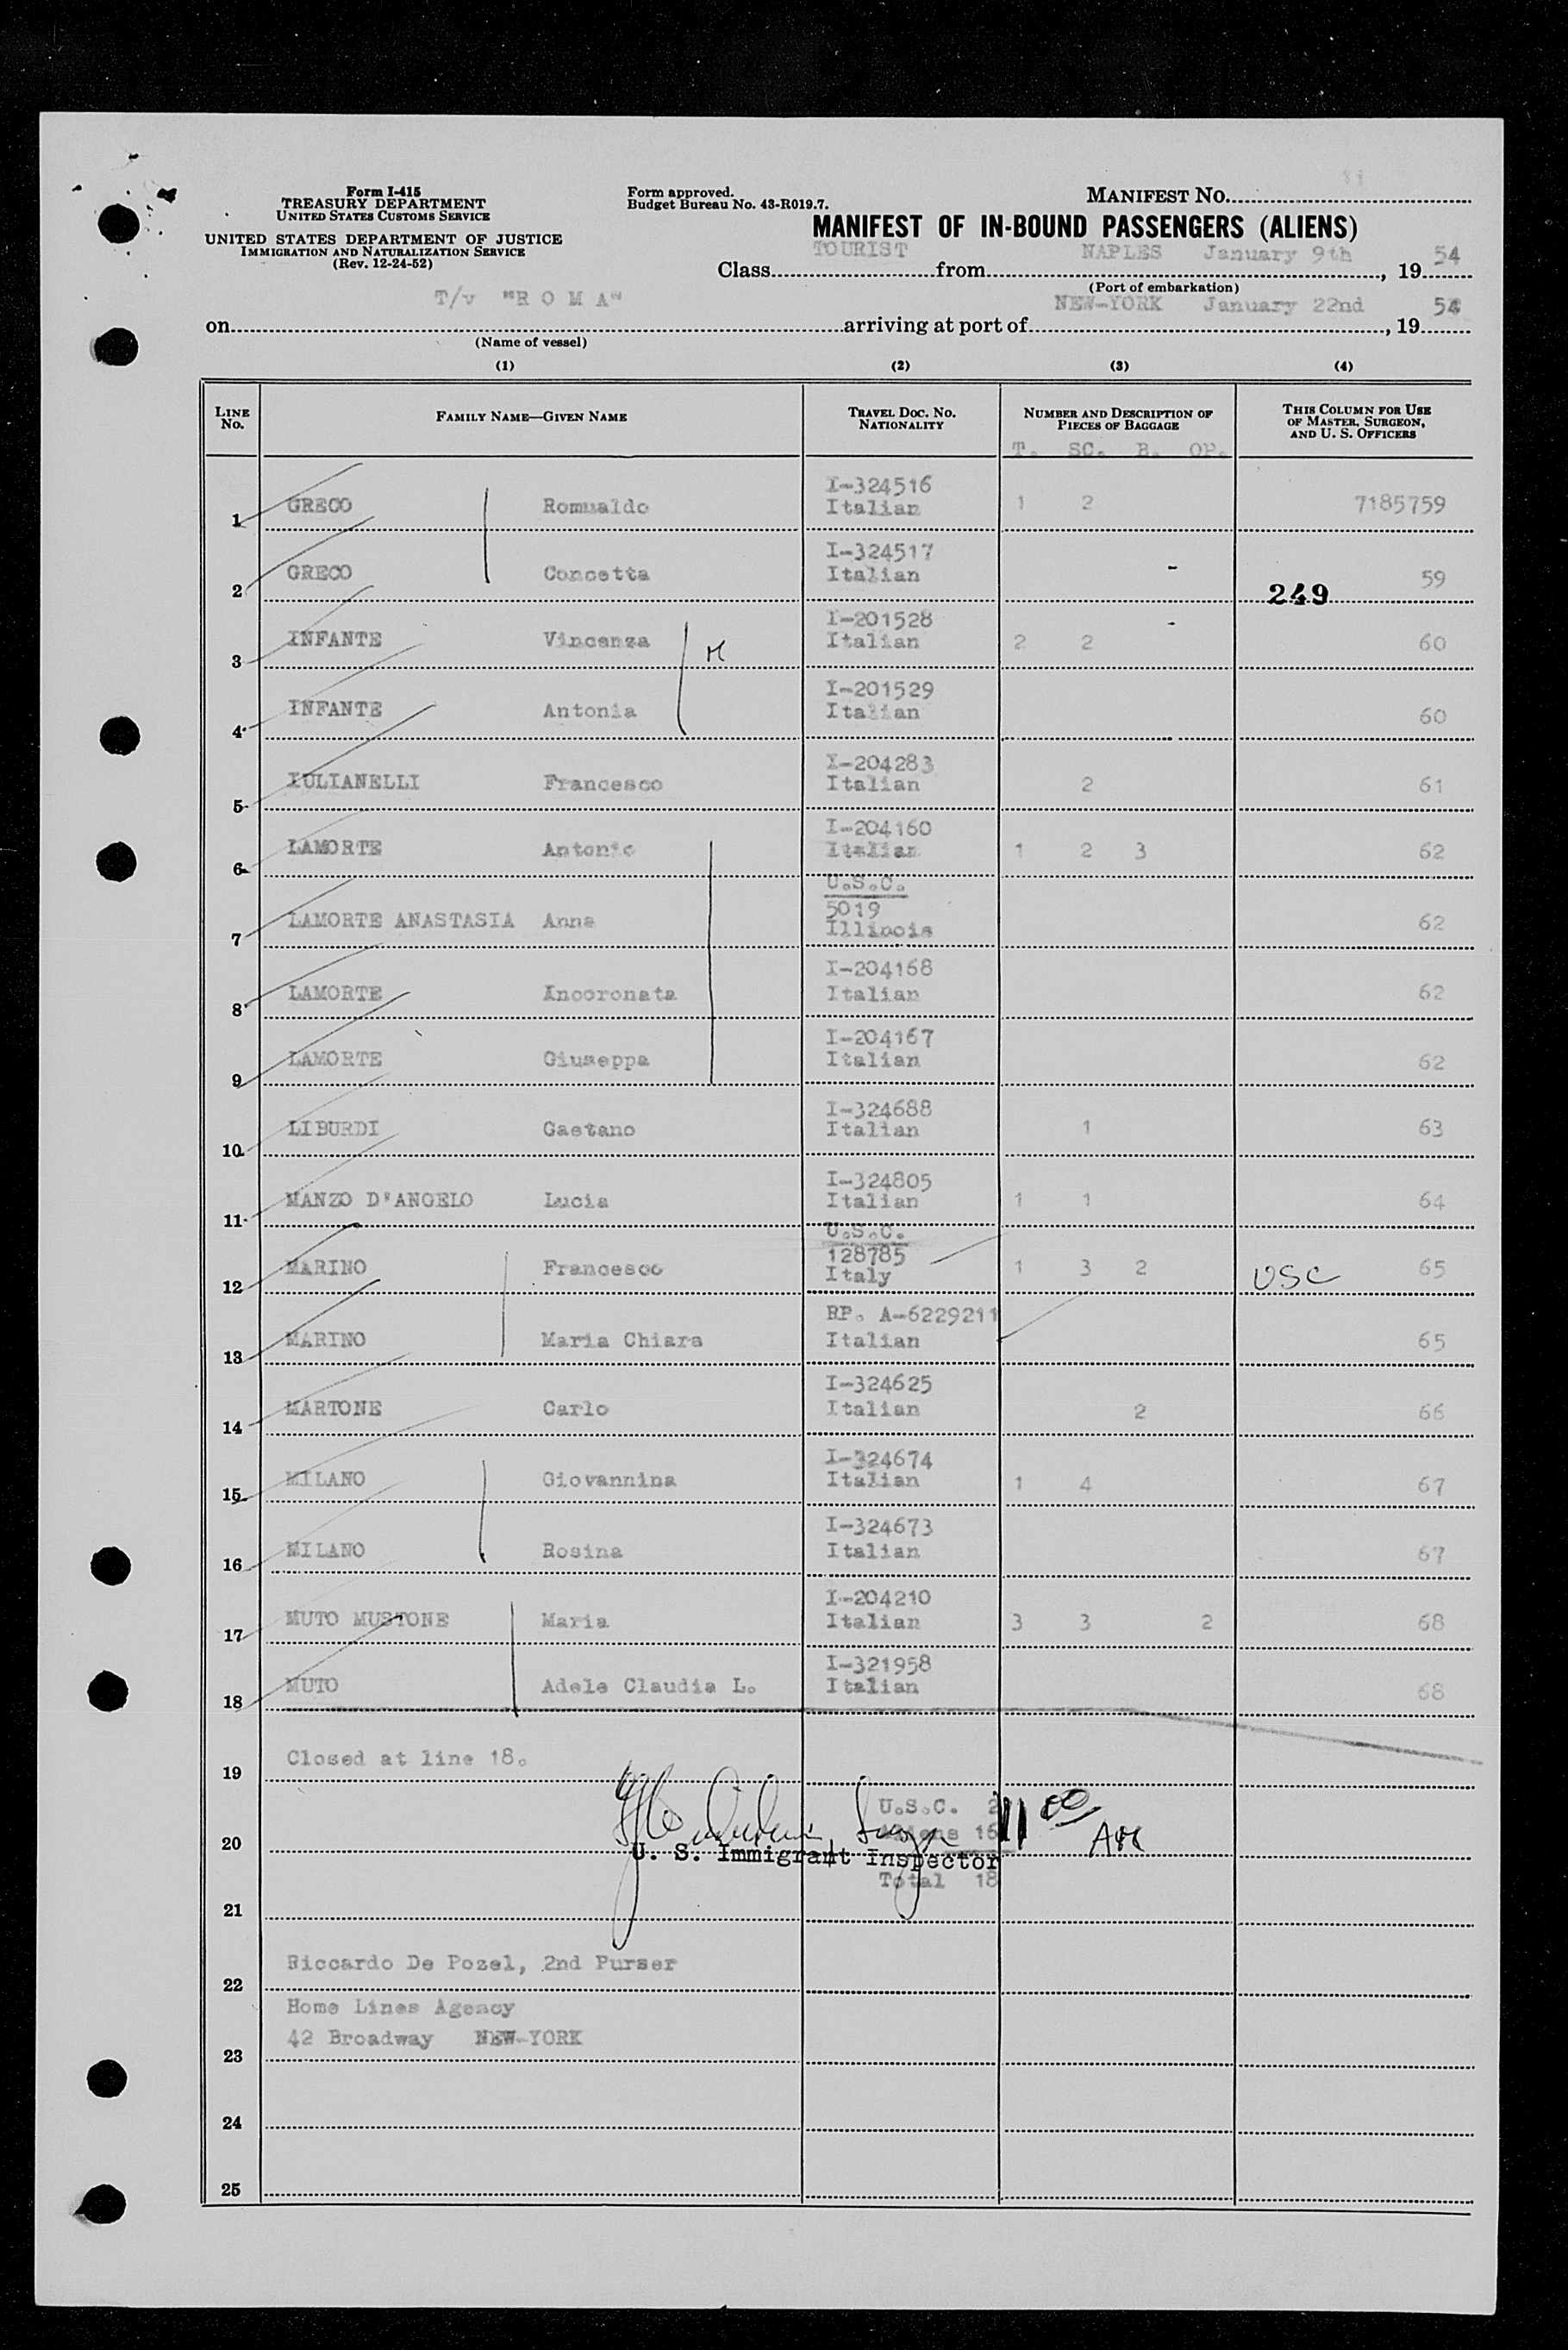 Form I-415
TREASURY DEPARTMENT
UNITED STATES CUSTOMS SERVICE
UNITED STATES DEPARTMENT OF JUSTICE
IMMIGRATION AND NATURALIZATION SERVICE
(Rev. 12-24-52)
Form approved.
Budget Bureau No. 43-R019.7.
MANIFEST No.
MANIFEST OF IN-BOUND PASSENGERS (ALIENS)
Class TOURIST from NAPLES January 9th, 19 54
(Port of embarkation)
on T/v "R O M A" arriving at port of NEW-YORK January 22nd, 19 54
(Name of vessel)
(1) (2) (3) (4)
LINE No. FAMILY NAME—GIVEN NAME TRAVEL DOC. No. NATIONALITY NUMBER AND DESCRIPTION OF PIECES OF BAGGAGE THIS COLUMN FOR USE OF MASTER, SURGEON, AND U. S. OFFICERS
T. SC. B. OP.
1 GRECO Romualdo I-324516 Italian 1 2 7185759
2 GRECO Concetta I-324517 Italian - 249 59
3 INFANTE Vincenza I-201528 Italian 2 2 60
4 INFANTE Antonia I-201529 Italian 60
5 IULIANELLI Francesco I-204283 Italian 2 61
6 LAMORTE Antonio I-204160 Italian 1 2 3 62
7 LAMORTE ANASTASIA Anna U.S.C. 5019 Illinois 62
8 LAMORTE Incoronata I-204168 Italian 62
9 LAMORTE Giuseppa I-204167 Italian 62
10 LIBURDI Gaetano I-324688 Italian 1 63
11 MANZO D'ANGELO Lucia I-324805 Italian 1 1 64
12 MARINO Francesco U.S.C. 128785 Italy 1 3 2 USC 65
13 MARINO Maria Chiara RP. A-6229211 Italian 65
14 MARTONE Carlo I-324625 Italian 2 66
15 MILANO Giovannina I-324674 Italian 1 4 67
16 MILANO Rosina I-324673 Italian 67
17 MUTO MUSTONE Maria I-204210 Italian 3 3 2 68
18 MUTO Adele Claudia L. I-321958 Italian 68
19 Closed at line 18.
U.S.C. 2
20 Aliens 16 11 00 AM
U. S. Immigrant Inspector
Total 18
21
22 Riccardo De Pozel, 2nd Purser
Home Lines Agency
23 42 Broadway NEW-YORK
24
25